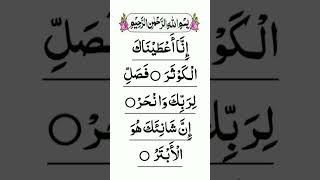 بِسْمِ اللّٰهِ الرَّحْمٰنِ الرَّحِيْمِ
اِنَّآ اَعْطَيْنٰكَ
الْكَوْثَرَ ○ فَصَلِّ
لِرَبِّكَ وَانْحَرْ ○
اِنَّ شَانِئَكَ هُوَ
الْاَبْتَرُ ○